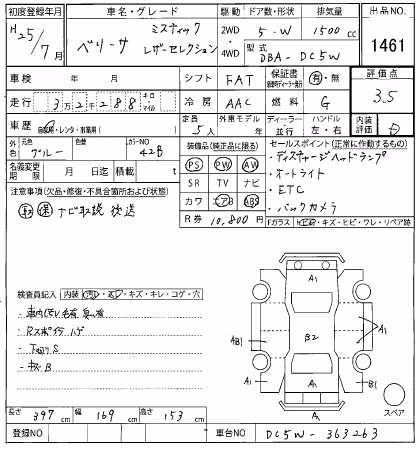 初度登録年月 車名・グレード 駆動 ドア数・形状 排気量 出品NO.
H25/7月 ベリーサ ミスティック レザーセレクション 2WD 4WD 5・W 1500cc 1461
型式 DBA-DC5W
車検 年 月 シフト FAT 保証書 有・無 評価点
走行 3万2千288 キロ・マイル 冷房 AAC 燃料 G 3.5
車歴 自家用・レンタ・事業用( ) 定員 5人 ディーラー 並行 ハンドル 左・右 内装評価
外色 元色 ブルー 色替 カラーNO 42B 装備品(純正品に限る) セールスポイント(正常に作動するもの)
名義変更期限 月 日迄 積載 t PS PW AW ・ディスチャージヘッドランプ
注意事項(欠品・修復・不具合箇所及び状態) SR TV ナビ ・オートライト
取 保 ナビ取説 後送 カワ エアB ABS ・ETC
・バックカメラ
R券 10,800円 Fガラス ・キズ・ヒビ・ワレ・リペア跡
検査員記入 内装 ・キズ・キレ・コゲ・穴
・Rスポイラ ハゲ
・下廻りS
・B
A1
AB1 B2 A1
A1 A B1
A スペア
長さ 397cm 幅 169cm 高さ 153cm
登録NO 車台NO DC5W-363263